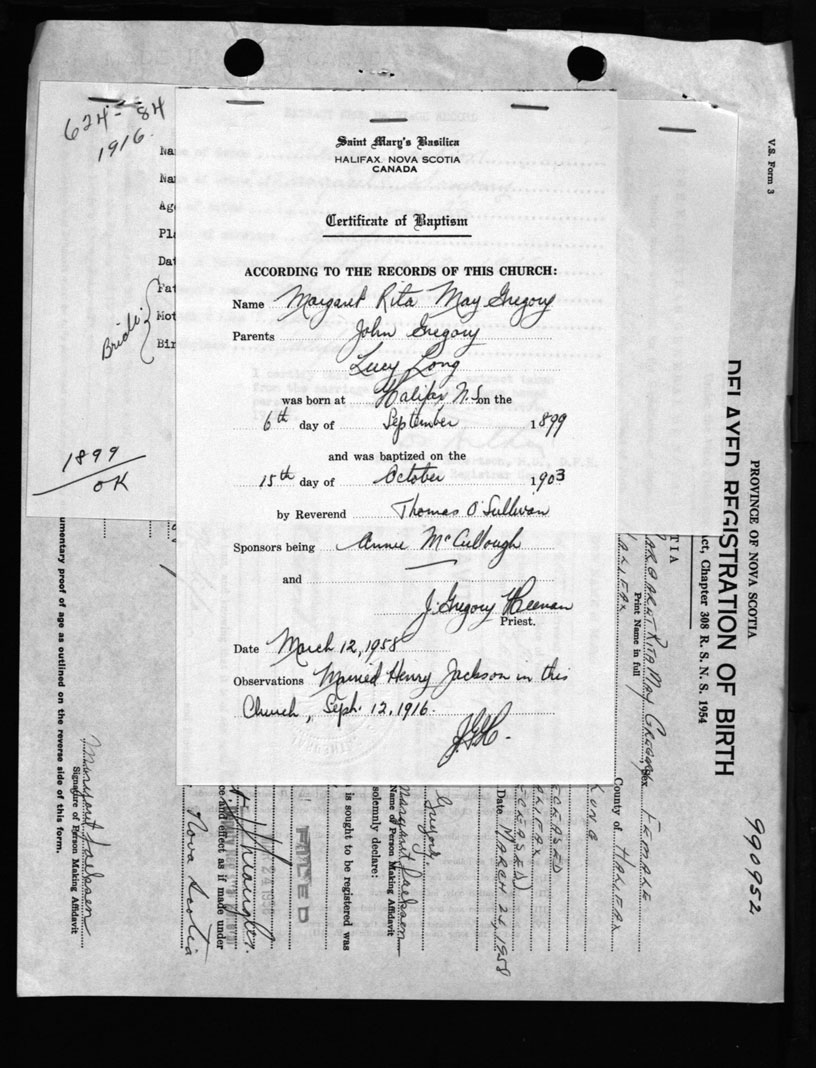 624-84
1916.
Na
Na
Ag
Pl
Dat
Fat
Mot
Bir
Bride's
1899
OK
Saint Mary's Basilica
HALIFAX, NOVA SCOTIA
CANADA
Certificate of Baptism
ACCORDING TO THE RECORDS OF THIS CHURCH:
Name Margaret Rita May Gregory
Parents John Gregory
Lucy Long
was born at Halifax N.S. on the
6th day of September 1899
and was baptized on the
15th day of October 1903
by Reverend Thomas O'Sullivan
Sponsors being Annie McCullough
and
J. Gregory Heenan
Priest.
Date March 12, 1958
Observations Married Henry Jackson in this
Church, Sept. 12, 1916.
JGH.
V.S. Form 3
PROVINCE OF NOVA SCOTIA
DELAYED REGISTRATION OF BIRTH
ct, Chapter 308 R. S. N. S. 1954
TIA
ARGARET RITA MAY GREGORY
Print Name in full
Sex FEMALE
ALIFAX
County of HALIFAX
990952
LONG
ECEASED
ALIFAX
ECEASED)
Date MARCH 21, 1958
Gregory.
Margaret Jackson
Name of Person Making Affidavit
solemnly declare:
is sought to be registered was
FILED
24 1958
ce and effect as if made under
Nova Scotia
umentary proof of age as outlined on the reverse side of this form.
Margaret Jackson
Signature of Person Making Affidavit